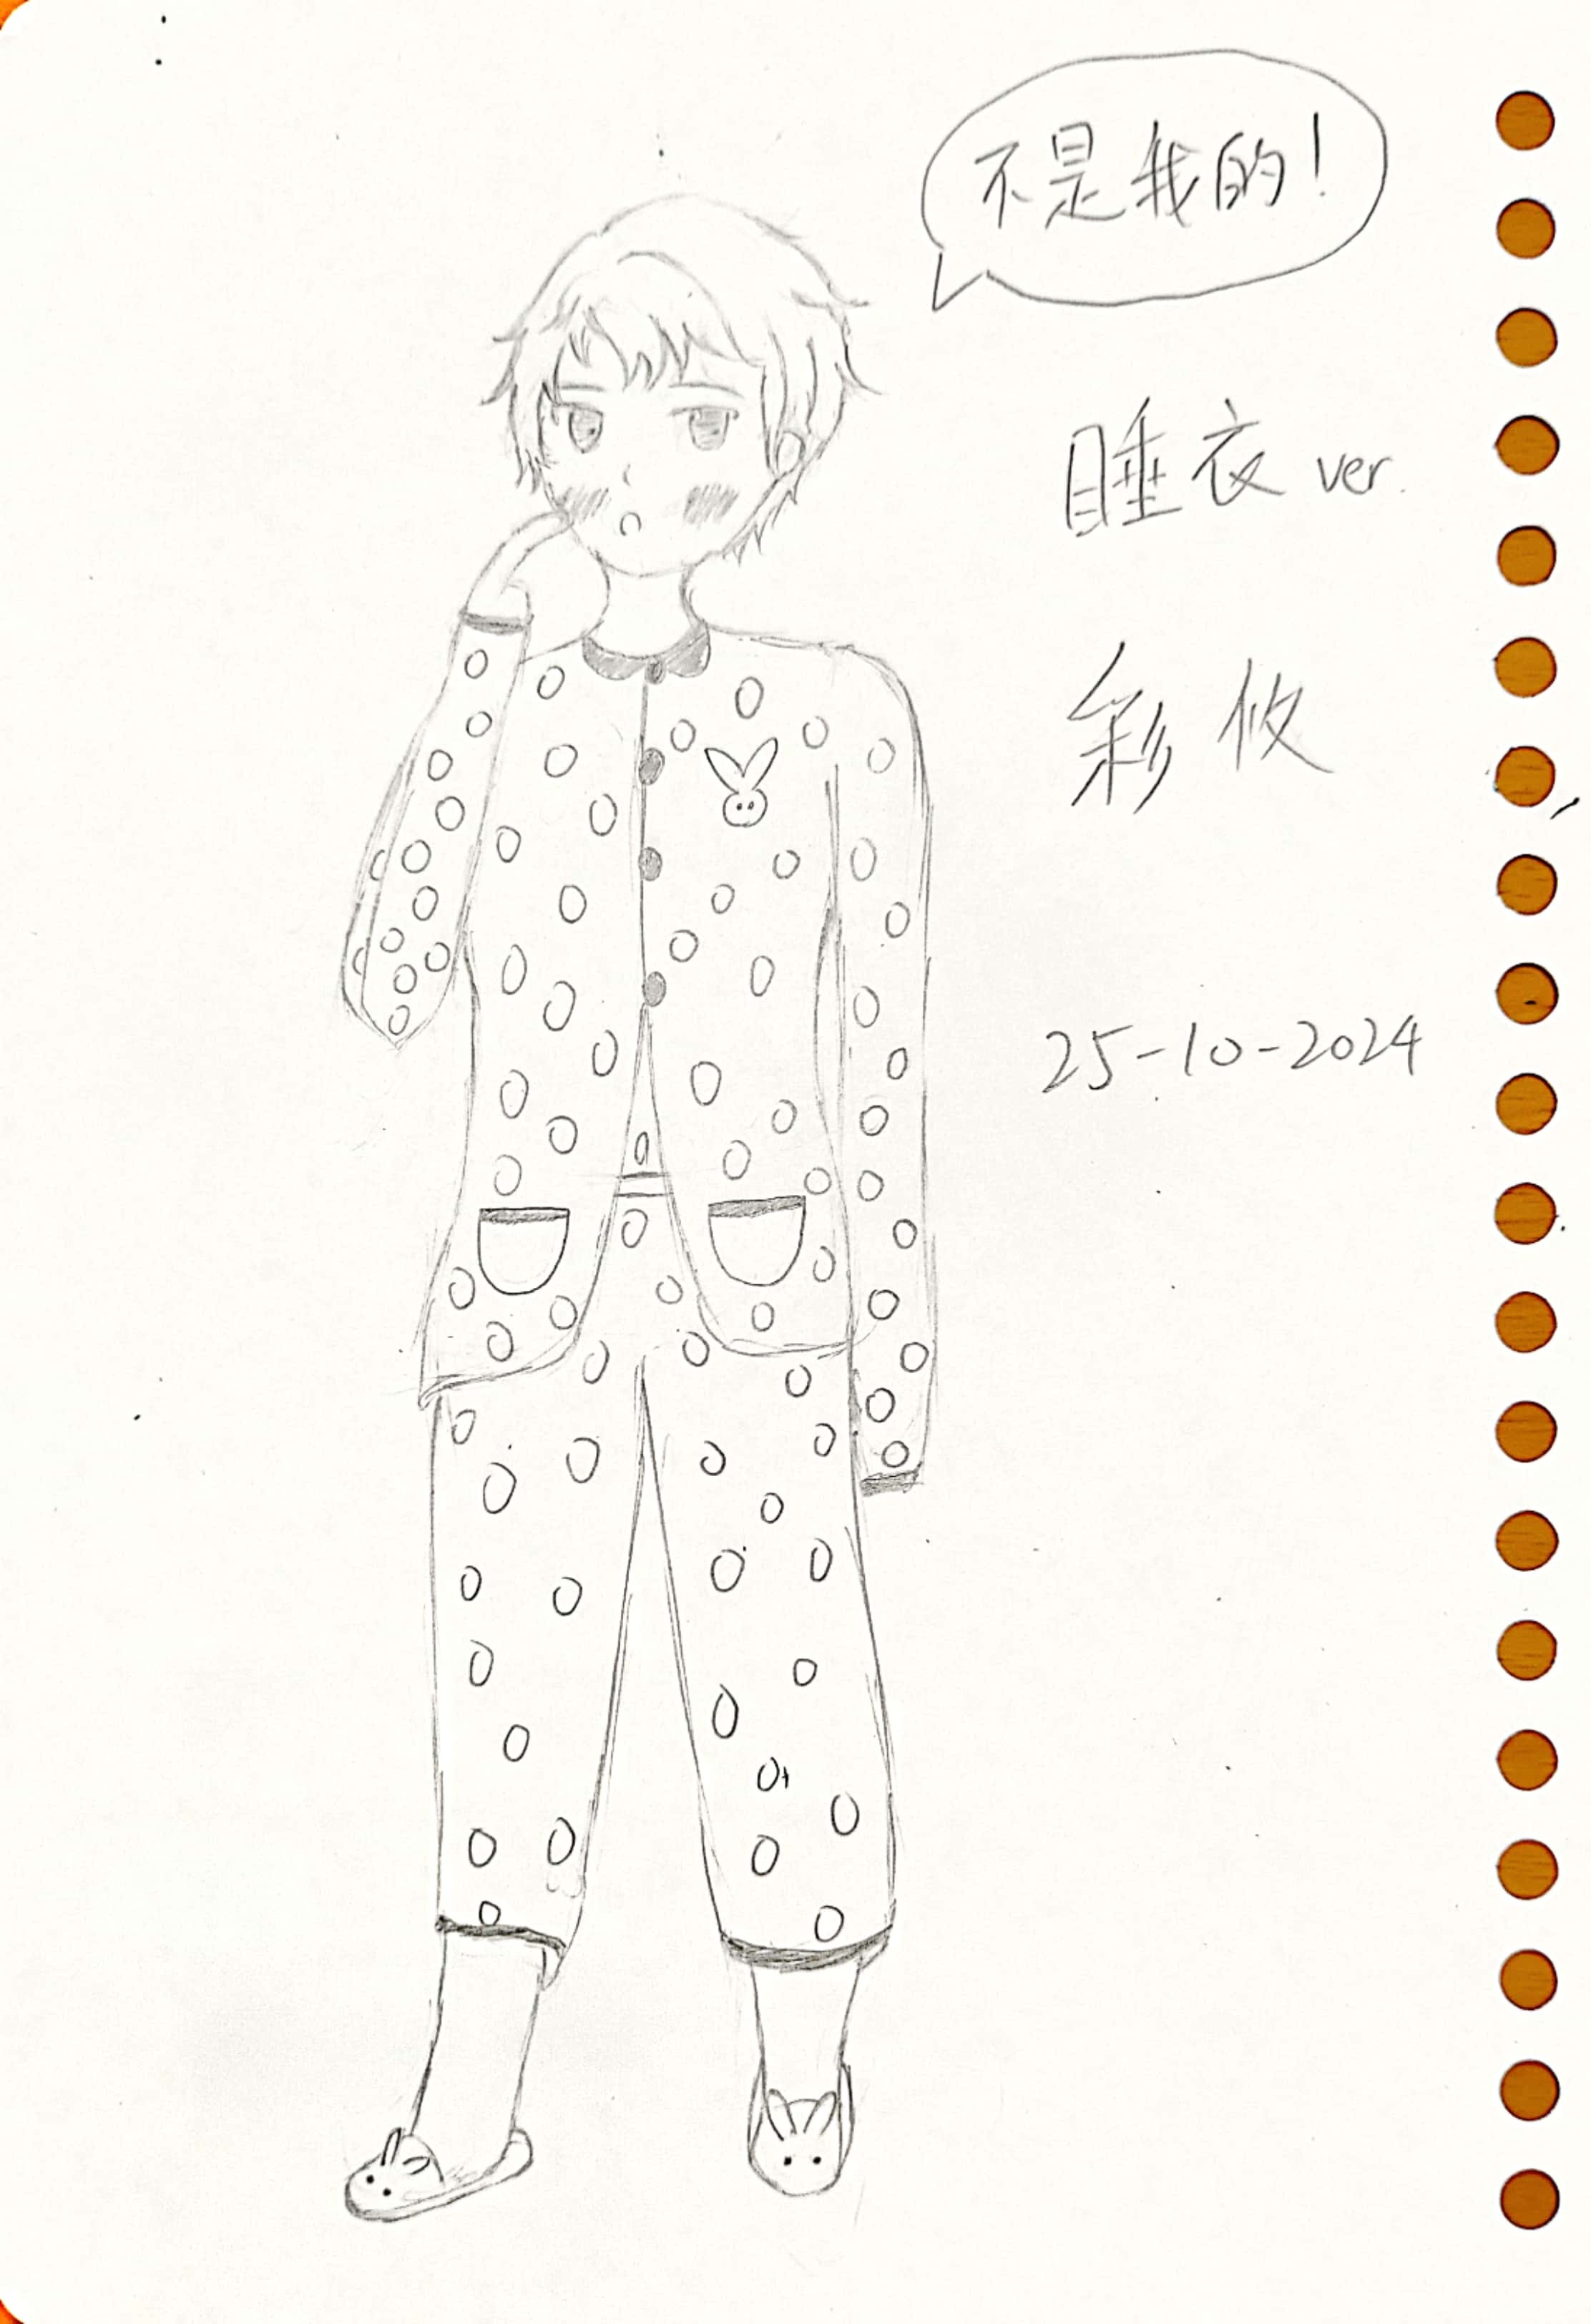 不是我的!
睡衣 ver.
彩攸
25-10-2024